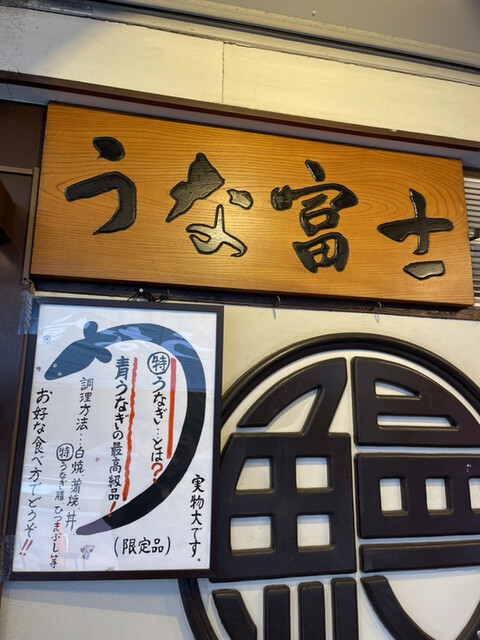 うな富士
実物大です。
特うなぎ…とは?
青うなぎの最高級品!
(限定品)
調理方法…白焼 蒲焼 丼
特うなぎ膳 ひつまぶし等
お好な食べ方でどうぞ!!
鰻